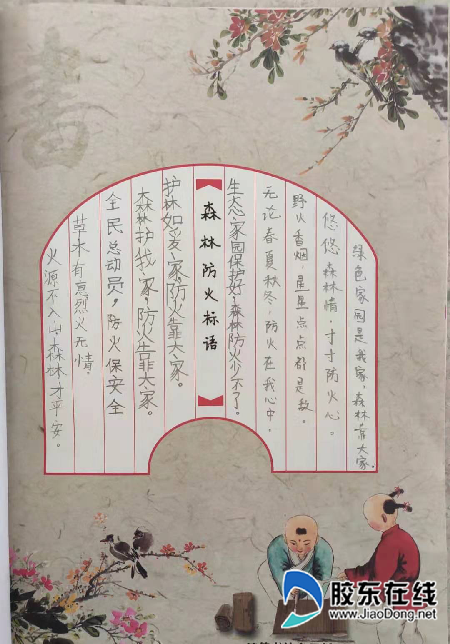 書
绿色家园是我家，森林靠大家.
悠悠森林情，寸寸防火心。
野火香烟 星星点点都是敌。
无论春夏秋冬，防火在我心中。
生态家园保护好，森林防火少不了。
【森林防火标语】
护林如爱家，防火靠大家。
森林护我家，防火靠大家。
全民总动员，防火保安全
草木有意烈火无情
火源不入山森林才平安。
胶东在线
www.JiaoDong.net